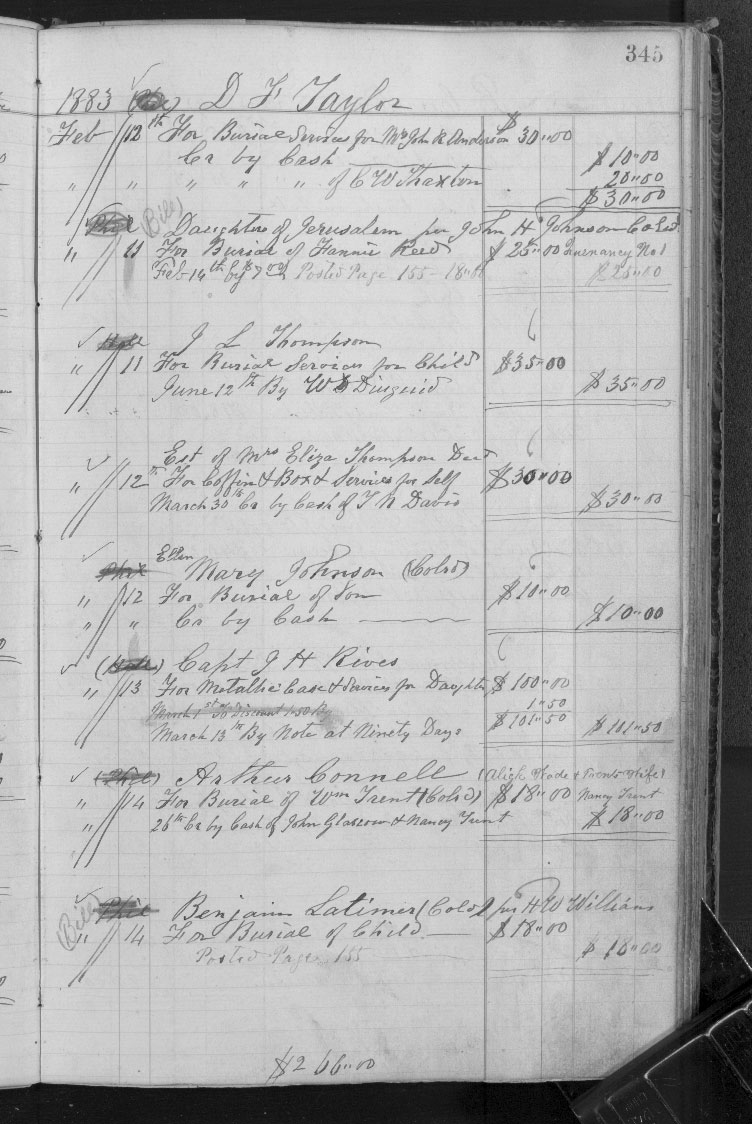 345
1883 D F Taylor
Feb 12th For Burial Services for Mrs John R Anderson $30"00
Cr by Cash $10"00
" " " " " of C W Thaxton 20"00
$30"00
(Bill) Daughters of Jerusalem per John H Johnson Cold
" 11 For Burial of Fannie Reed $25"00 No 1
Feb 14th by $7 00 Posted Page 155 - 18"00 $25"00
J L Thompson
" 11 For Burial Services for Child $35"00
June 12th By W D Diuguid $35"00
Est of Mrs Eliza Thompson Decd
" 12th For Coffin & Box & Services for Self $30"00
March 30th Cr by Cash of T N Davis $30"00
Phil Ellen Mary Johnson (Colrd)
" 12 For Burial of Son $10"00
" " Cr by Cash $10"00
Capt J H Rives
" 13 For Metallic Case & Services for Daughter $100"00
March 1st To discount 1.50 1"50
March 13th By Note at Ninety Days $101"50 $101"50
(Phil) Arthur Connell (
" 14 For Burial of Wm Trent (Colrd) $18"00 Nancy Trent
" 26th Cr by Cash of John Glascow & Nancy Trent $18"00
Bill Phil Benjamin Latimer (Colrd) per H W Williams
" 14 For Burial of Child $18"00
Posted Page 155 $18"00
$266"00